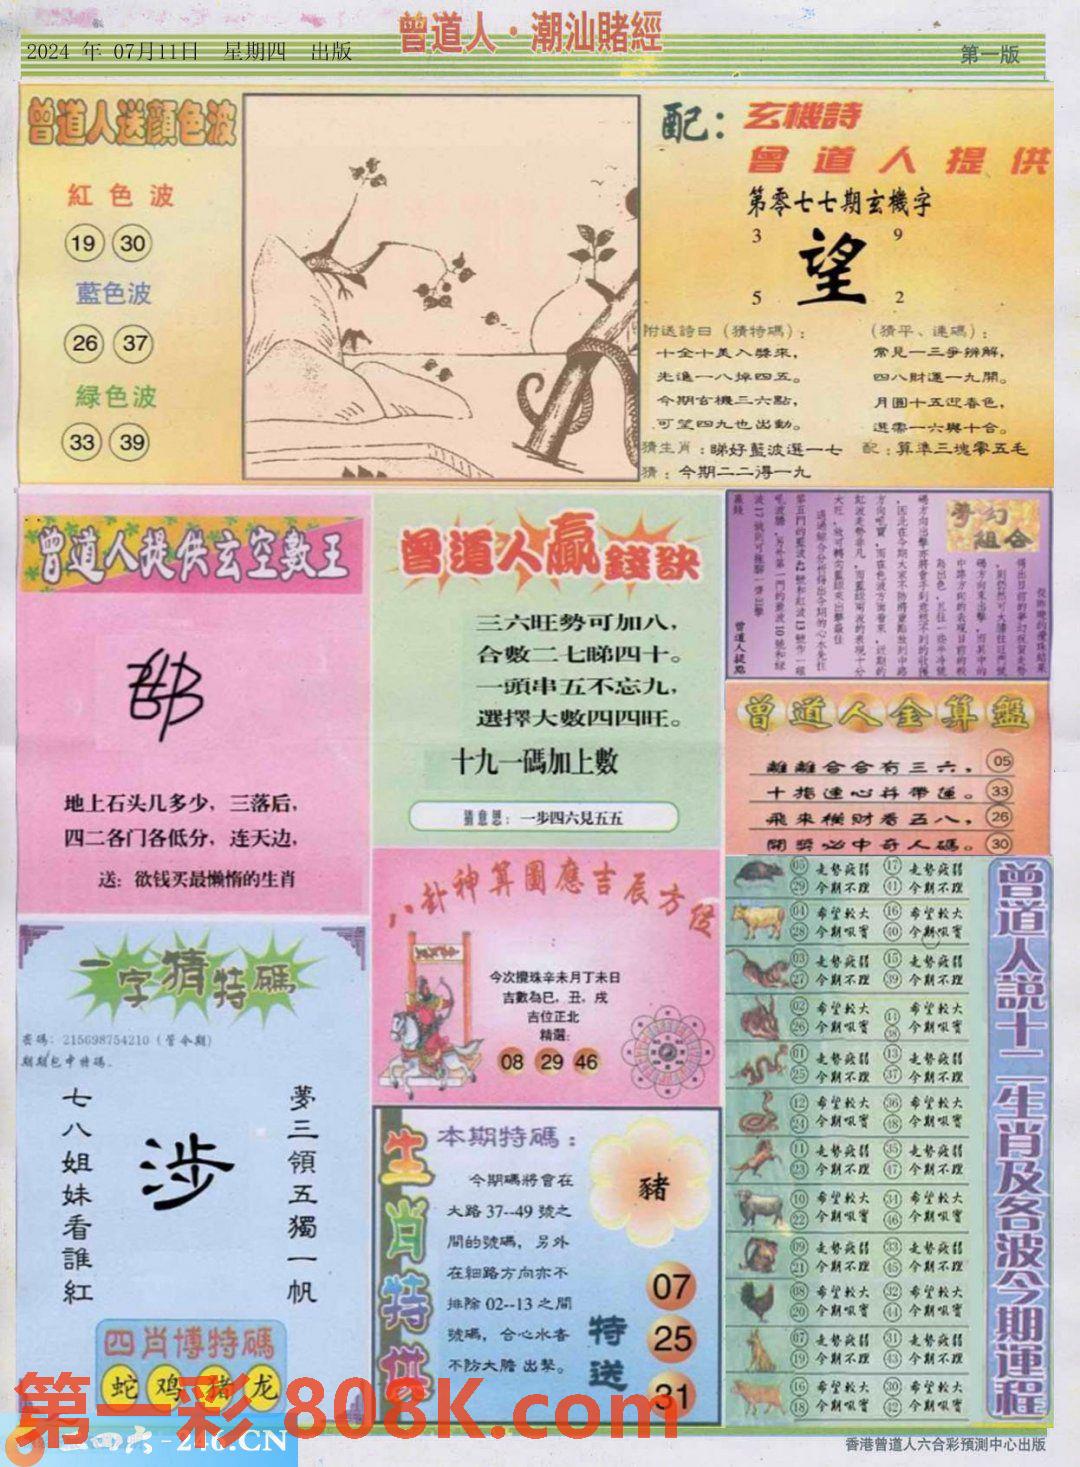 曾道人·潮汕賭經
2024 年 07月11日 星期四 出版
第一版
曾道人送顔色波
紅色波
19 30
藍色波
26 37
綠色波
33 39
配：玄機詩
曾道人提供
第零七七期玄機字
3 9
望
5 2
附送詩曰（猜特碼）：
十全十美入獎來，
先進一八掉四五。
今期玄機三六點，
可望四九也出動。
（猜平、連碼）：
常見一三爭辨解，
四八財運一九開。
月圓十五迎春色，
選需一六與十合。
猜生肖：睇好藍波選一七
配：算準三塊零五毛
猜：今期二二得一九
曾道人提供玄空數王
地上石头几多少，三落后，
四二各门各低分，连天边，
送：欲钱买最懒惰的生肖
曾道人贏錢訣
三六旺勢可加八，
合數二七睇四十。
一頭串五不忘九，
選擇大數四四旺。
十九一碼加上數
猜意思：一步四六見五五
夢幻組合
曾道人提點
曾道人金算盤
離離合合有三六， 05
十指連心并帶運。 33
飛來橫財看五八， 26
開獎必中奇人碼。 30
八卦神算圖應吉辰方位
今次攪珠辛未月丁未日
吉數為巳，丑，戌
吉位正北
精選：
08 29 46
一字猜特碼
密碼：215698754210（管令期）
期期包中特碼.
夢三領五獨一帆
涉
七八姐妹看誰紅
四肖博特碼
蛇 鸡 猪 龙
生肖特供
本期特碼：
今期碼將會在
大路 37--49 號之
間的號碼，另外
在細路方向亦不
排除 02--13 之間
號碼，合心水者
不防大膽 出擊。
豬
特送
07
25
31
曾道人說十二生肖及各波今期運程
05 走勢疲弱 17 走勢疲弱
29 今期不理 41 今期不理
04 希望較大 16 希望較大
28 今期吼實 40 今期吼實
03 走勢疲弱 15 走勢疲弱
27 今期不理 39 今期不理
02 希望較大 14 希望較大
26 今期吼實 38 今期吼實
01 走勢疲弱 13 走勢疲弱
25 今期不理 37 今期不理
12 希望較大 36 希望較大
24 今期吼實 48 今期吼實
11 走勢疲弱 35 走勢疲弱
23 今期不理 47 今期不理
10 希望較大 34 希望較大
22 今期吼實 46 今期吼實
09 走勢疲弱 33 走勢疲弱
21 今期不理 45 今期不理
08 希望較大 32 希望較大
20 今期吼實 44 今期吼實
07 走勢疲弱 31 走勢疲弱
19 今期不理 43 今期不理
希望較大 30 希望較大
18 今期吼實 42 今期吼實
第一彩 808K.com
四六-246.CN
香港曾道人六合彩預測中心出版